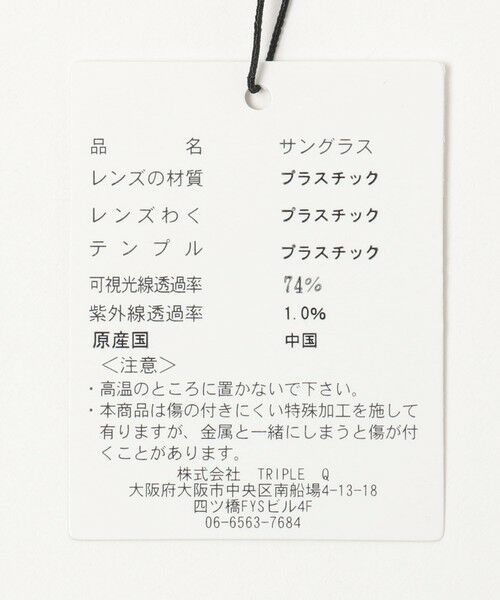 品名 サングラス
レンズの材質 プラスチック
レンズわく プラスチック
テンプル プラスチック
可視光線透過率 74%
紫外線透過率 1.0%
原産国 中国
＜注意＞
・高温のところに置かないで下さい。
・本商品は傷の付きにくい特殊加工を施して
有りますが、金属と一緒にしまうと傷が付
くことがあります。
株式会社 TRIPLE Q
大阪府大阪市中央区南船場4-13-18
四ツ橋FYSビル4F
06-6563-7684